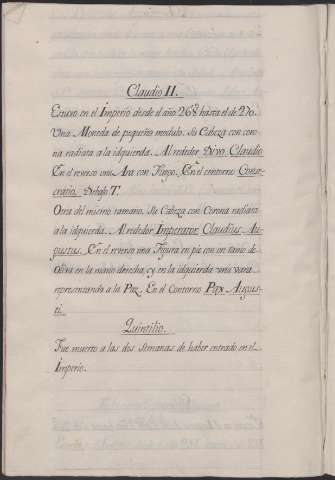 Claudio II.
Estuvo en el Imperio desde el año 268 hasta el de 270.
Una Moneda de pequeño modulo. Su Cabeza con coro-
na radiata a la idquierda. Al rededor Divo Claudio
En el reverso una Ara con Fuego. En el contorno Conse-
cratio. Debajo T.
Otra del mismo tamano. Su Cabeza con Corona radiata
a la idquierda. Al rededor Imperator Claudius Au-
gustus. En el reverso una Figura en pie con un ramo de
Oliva en la mano derecha, y en la idquierda una vara
representando a la Paz. En el Contorno Pax Augus-
ti.
Quintilio.
Fue muerto a las dos Semanas de haber entrado en el
Imperio.